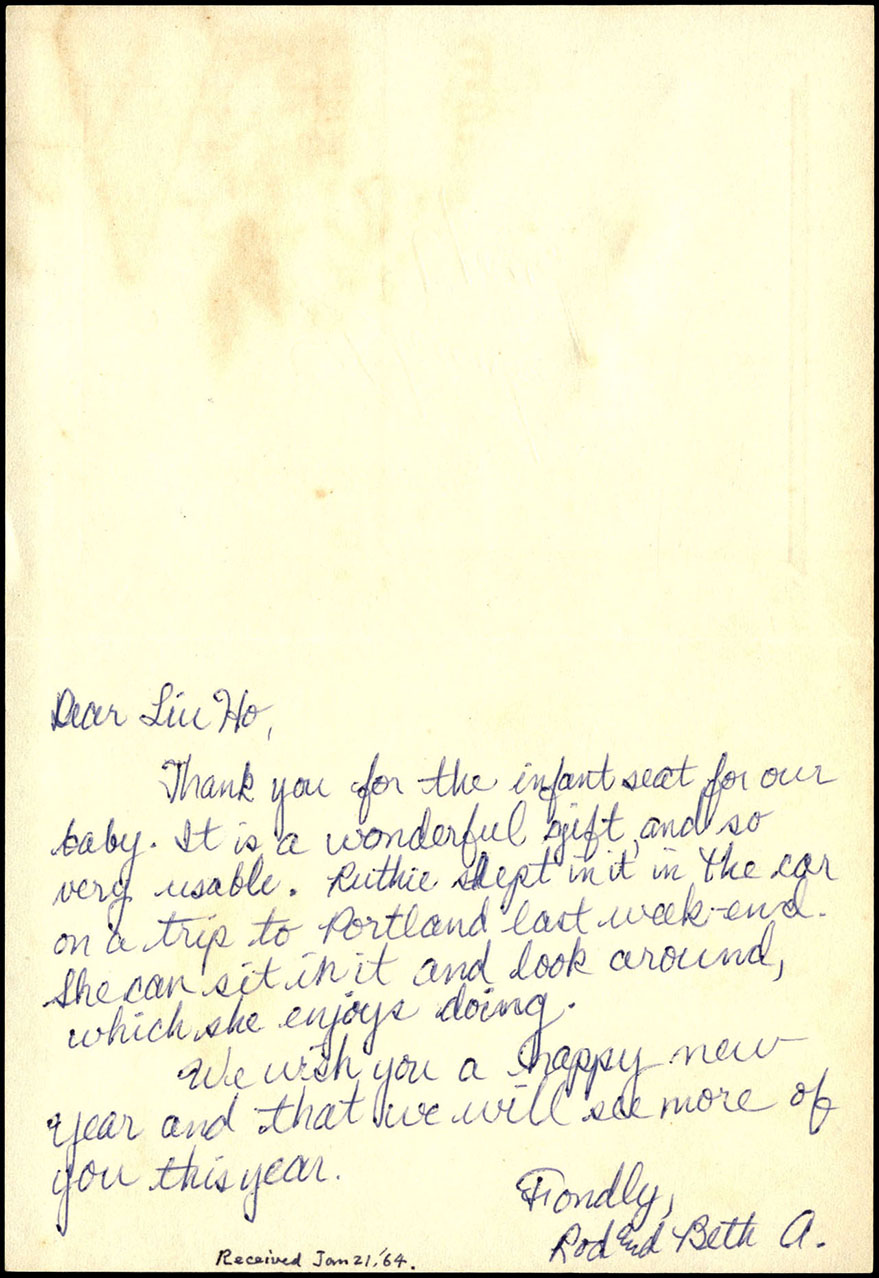 Dear Liu Ho,
Thank you for the infant seat for our
baby. It is a wonderful gift, and so
very usable. Ruthie slept in it in the car
on a trip to Portland last week-end.
She can sit in it and look around,
which she enjoys doing.
We wish you a happy new
year and that we will see more of
you this year.
Fondly,
Rod and Beth A.
Received Jan 21, '64.